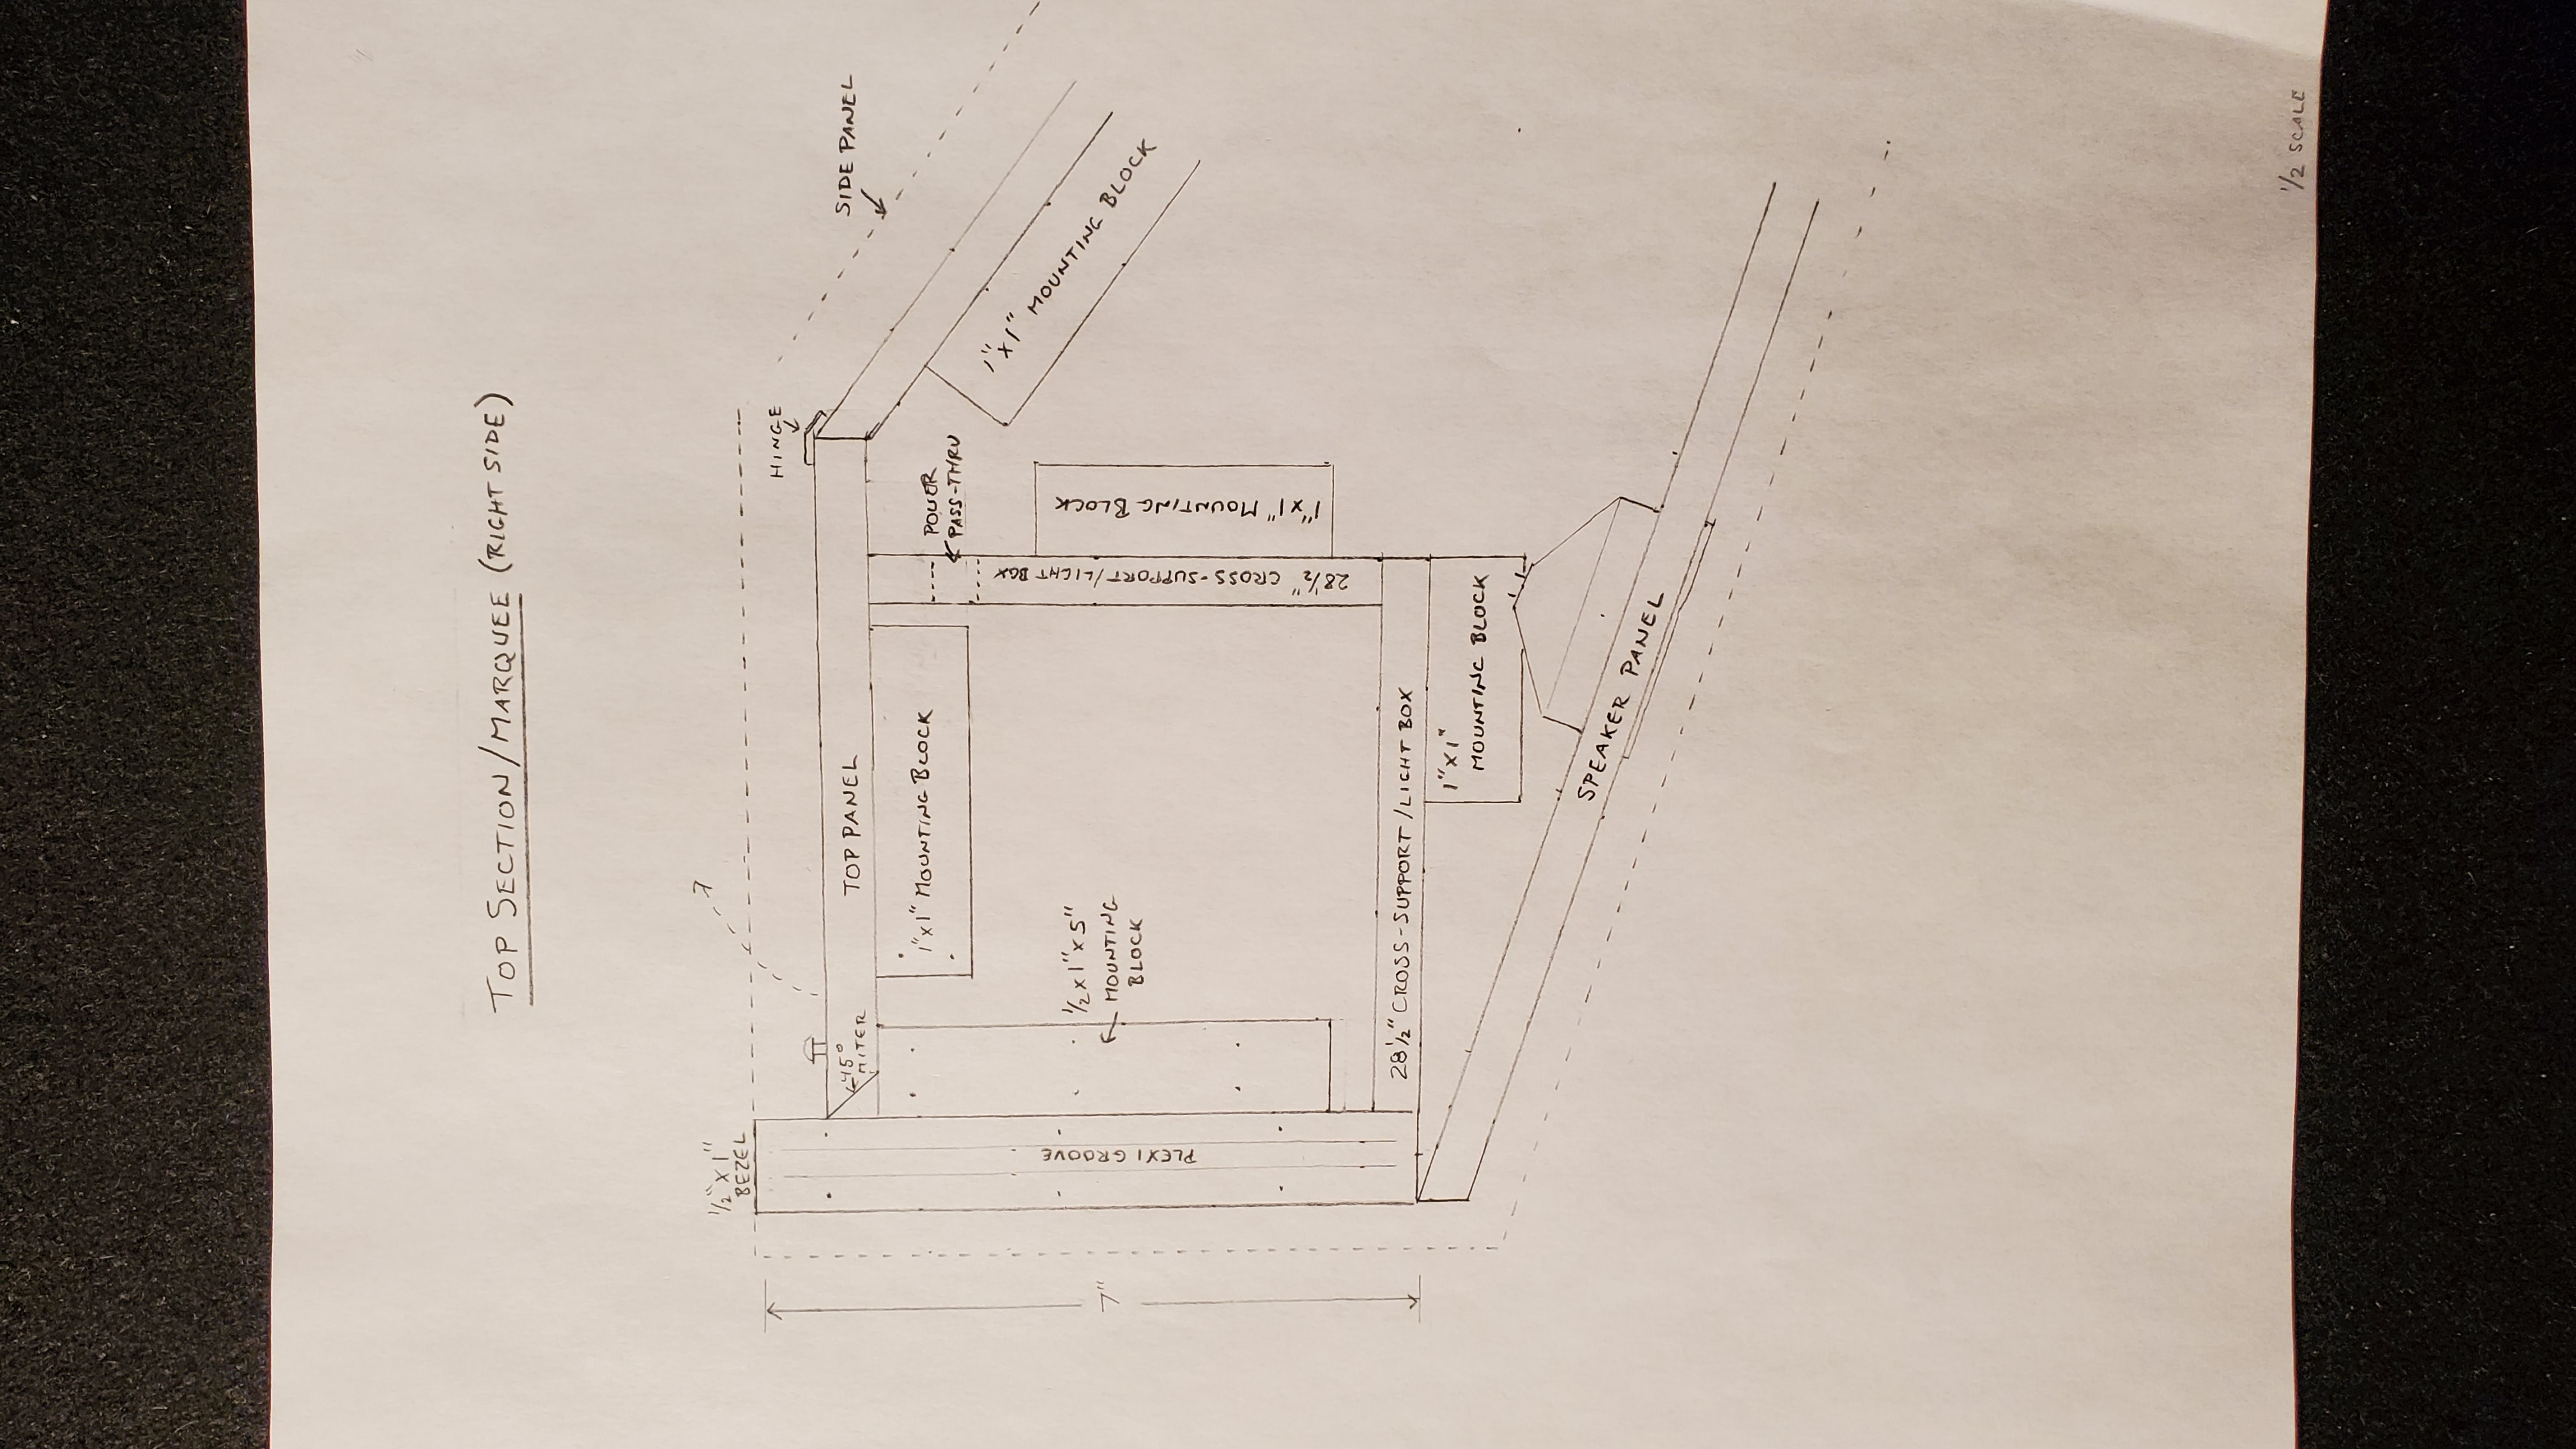 TOP SECTION/MARQUEE (RIGHT SIDE)
1/2" X 1"
BEZEL
HINGE
SIDE PANEL
45°
MITER
TOP PANEL
1"x1" MOUNTING BLOCK
POWER
PASS-THRU
1"x1" MOUNTING BLOCK
7"
PLEXI GROOVE
1/2x1"x5"
MOUNTING
BLOCK
28 1/2" CROSS-SUPPORT/LIGHT BOX
1"x1" MOUNTING BLOCK
28 1/2" CROSS-SUPPORT/LIGHT BOX
1"X1"
MOUNTING BLOCK
SPEAKER PANEL
1/2 SCALE